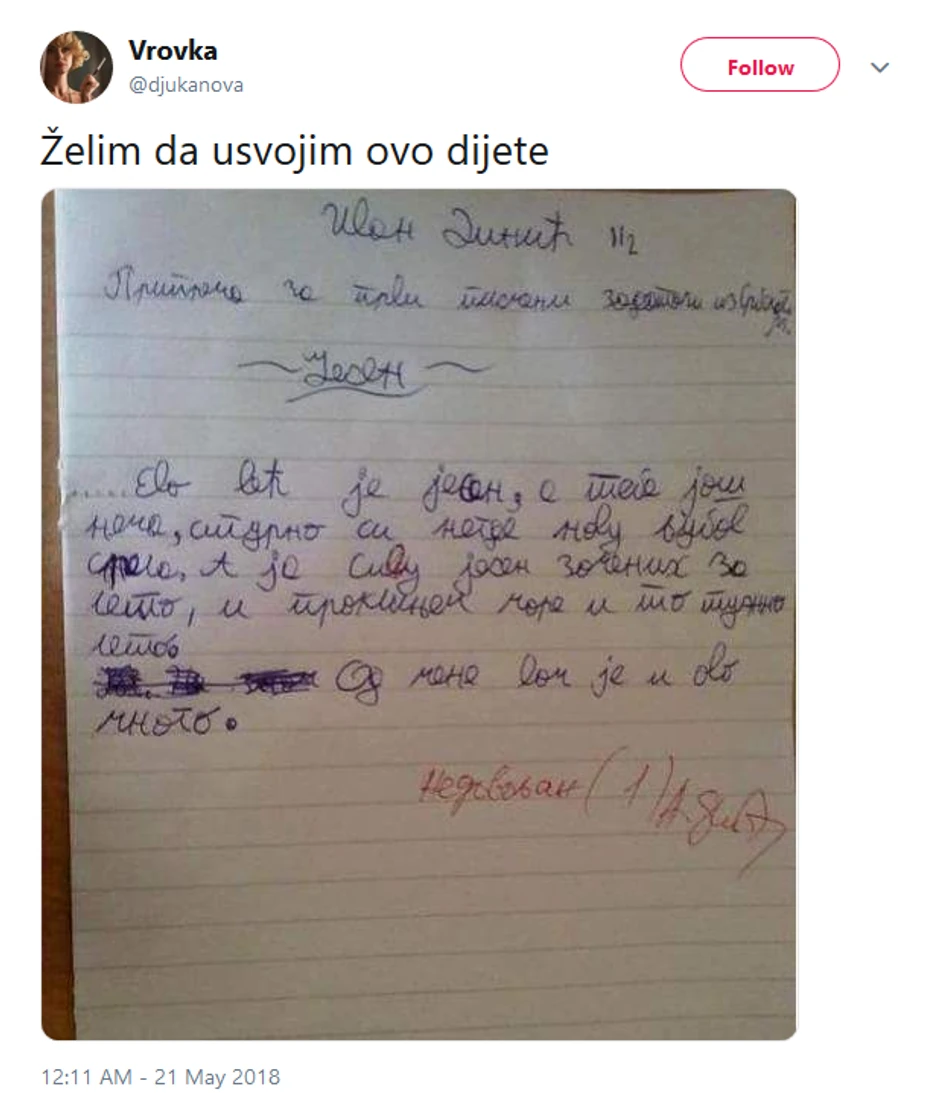 Vrovka
@djukanova
Follow
Želim da usvojim ovo dijete
Иван Динић II2
Припрема за први писмени задатак из
Јесен
.....Ево већ је јесен, а тебе још
нема, сигурно си негде нову љубав
срела. А ја сиву јесен замених за
лето, и проклињем море и то тужно
лето.
Од мене вам је и ово
много.
Недовољан (1)
12:11 AM - 21 May 2018